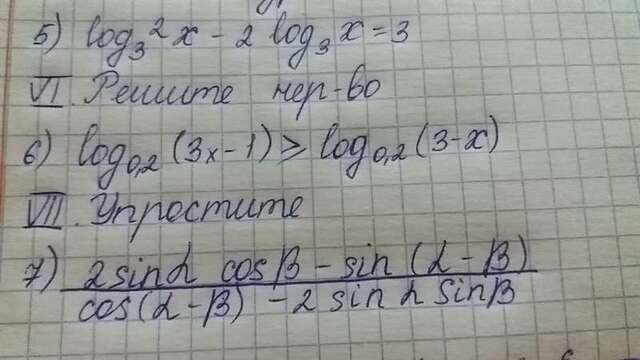 5) log₃²x - 2 log₃x = 3
VI. Решите нер-во
6) log₀,₂ (3x-1) ≥ log₀,₂ (3-x)
VII. Упростите
7) 2 sin α cos β - sin (α - β)
cos(α - β) - 2 sin α sin β